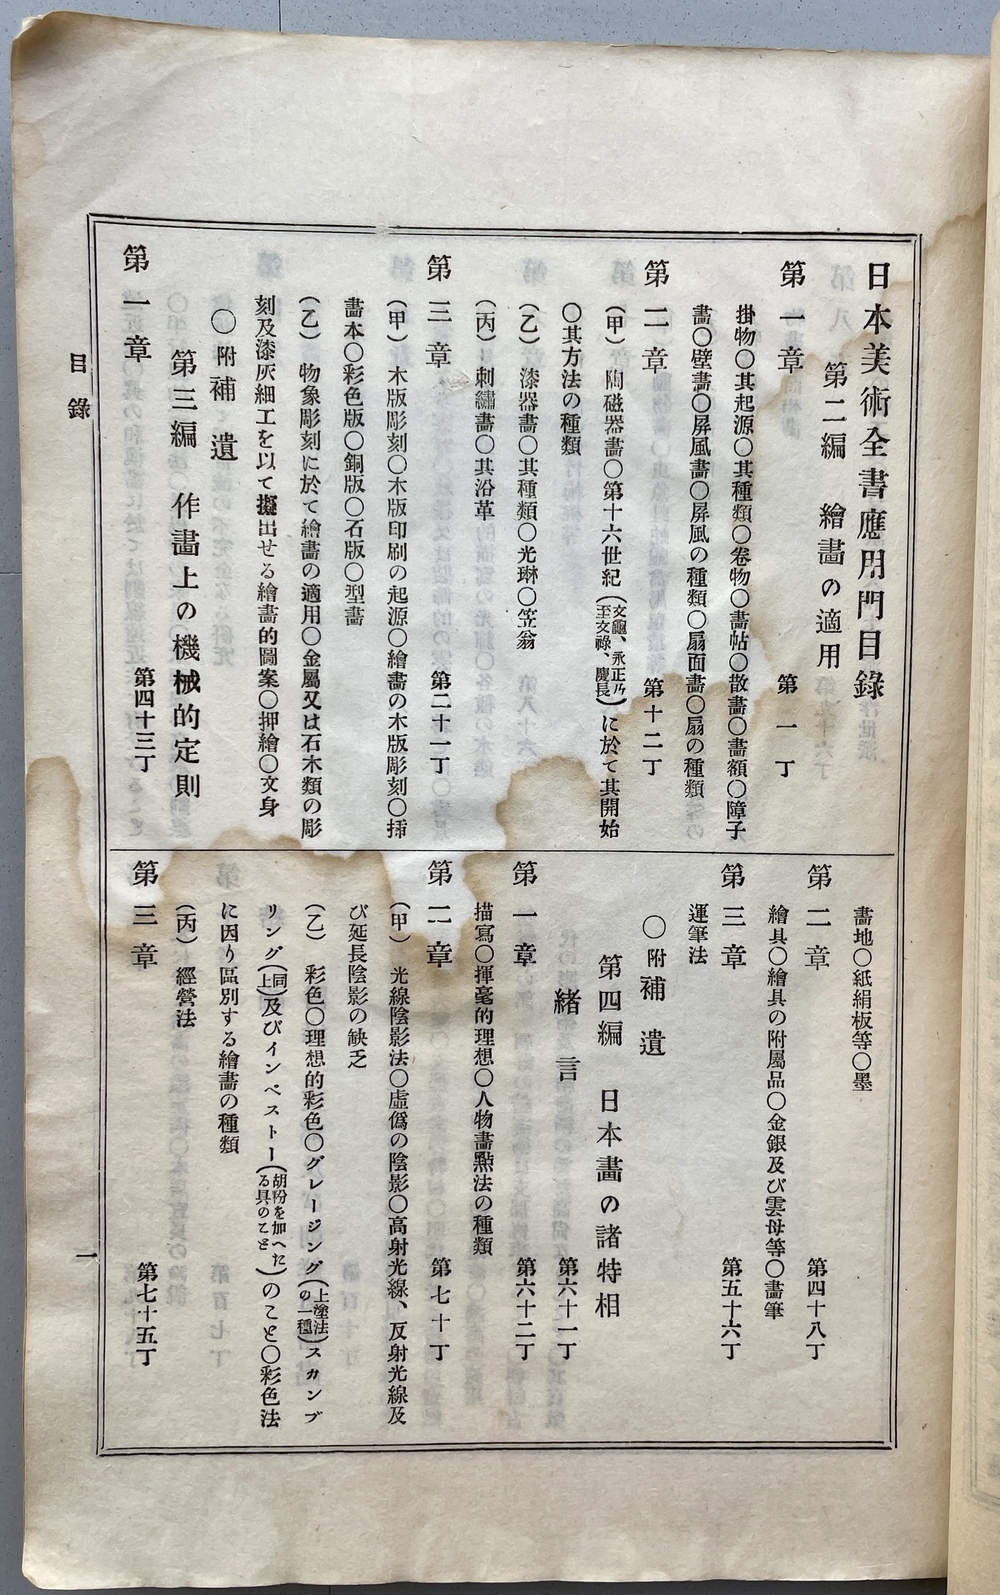 日本美術全書應用門目錄
第二編　繪畫の適用
第一章　第一丁
掛物〇其起源〇其種類〇卷物〇畵帖〇散畵〇畵額〇障子
畵〇壁畵〇屏風畵〇屏風の種類〇扇面畵〇扇の種類
第二章　第十二丁
(甲)　陶磁器畵〇第十六世紀(文龜、永正乃至文祿、慶長)に於て其開始
〇其方法の種類
(乙)　漆器畵〇其種類〇光琳〇笠翁
(丙)　刺繡畵〇其沿革
第三章　第二十一丁
(甲)　木版彫刻〇木版印刷の起源〇繪畵の木版彫刻〇揷
畵本〇彩色版〇銅版〇石版〇型畵
(乙)　物象彫刻に於て繪畵の適用〇金屬又は石木類の彫
刻及漆灰細工を以て擬出せる繪畵的圖案〇押繪〇文身
〇附補遺
第三編　作畵上の機械的定則
第一章　第四十三丁
畵地〇紙絹板等〇墨
第二章　第四十八丁
繪具〇繪具の附屬品〇金銀及び雲母等〇畵筆
第三章　第五十六丁
運筆法
〇附補遺
第四編　日本畵の諸特相
緖言　第六十一丁
第一章　第六十二丁
描寫〇揮毫的理想〇人物畵㸃法の種類
第二章　第七十丁
(甲)　光線陰影法〇虛僞の陰影〇高射光線、反射光線及
び延長陰影の缺乏
(乙)　彩色〇理想的彩色〇グレージング(上塗法の一種)スカンブ
リング(同上)及びインペストー(胡粉を加へたる具のこと)のこと〇彩色法
に因り區別する繪畵の種類
(丙)　經營法
第三章　第七十五丁
目錄
一